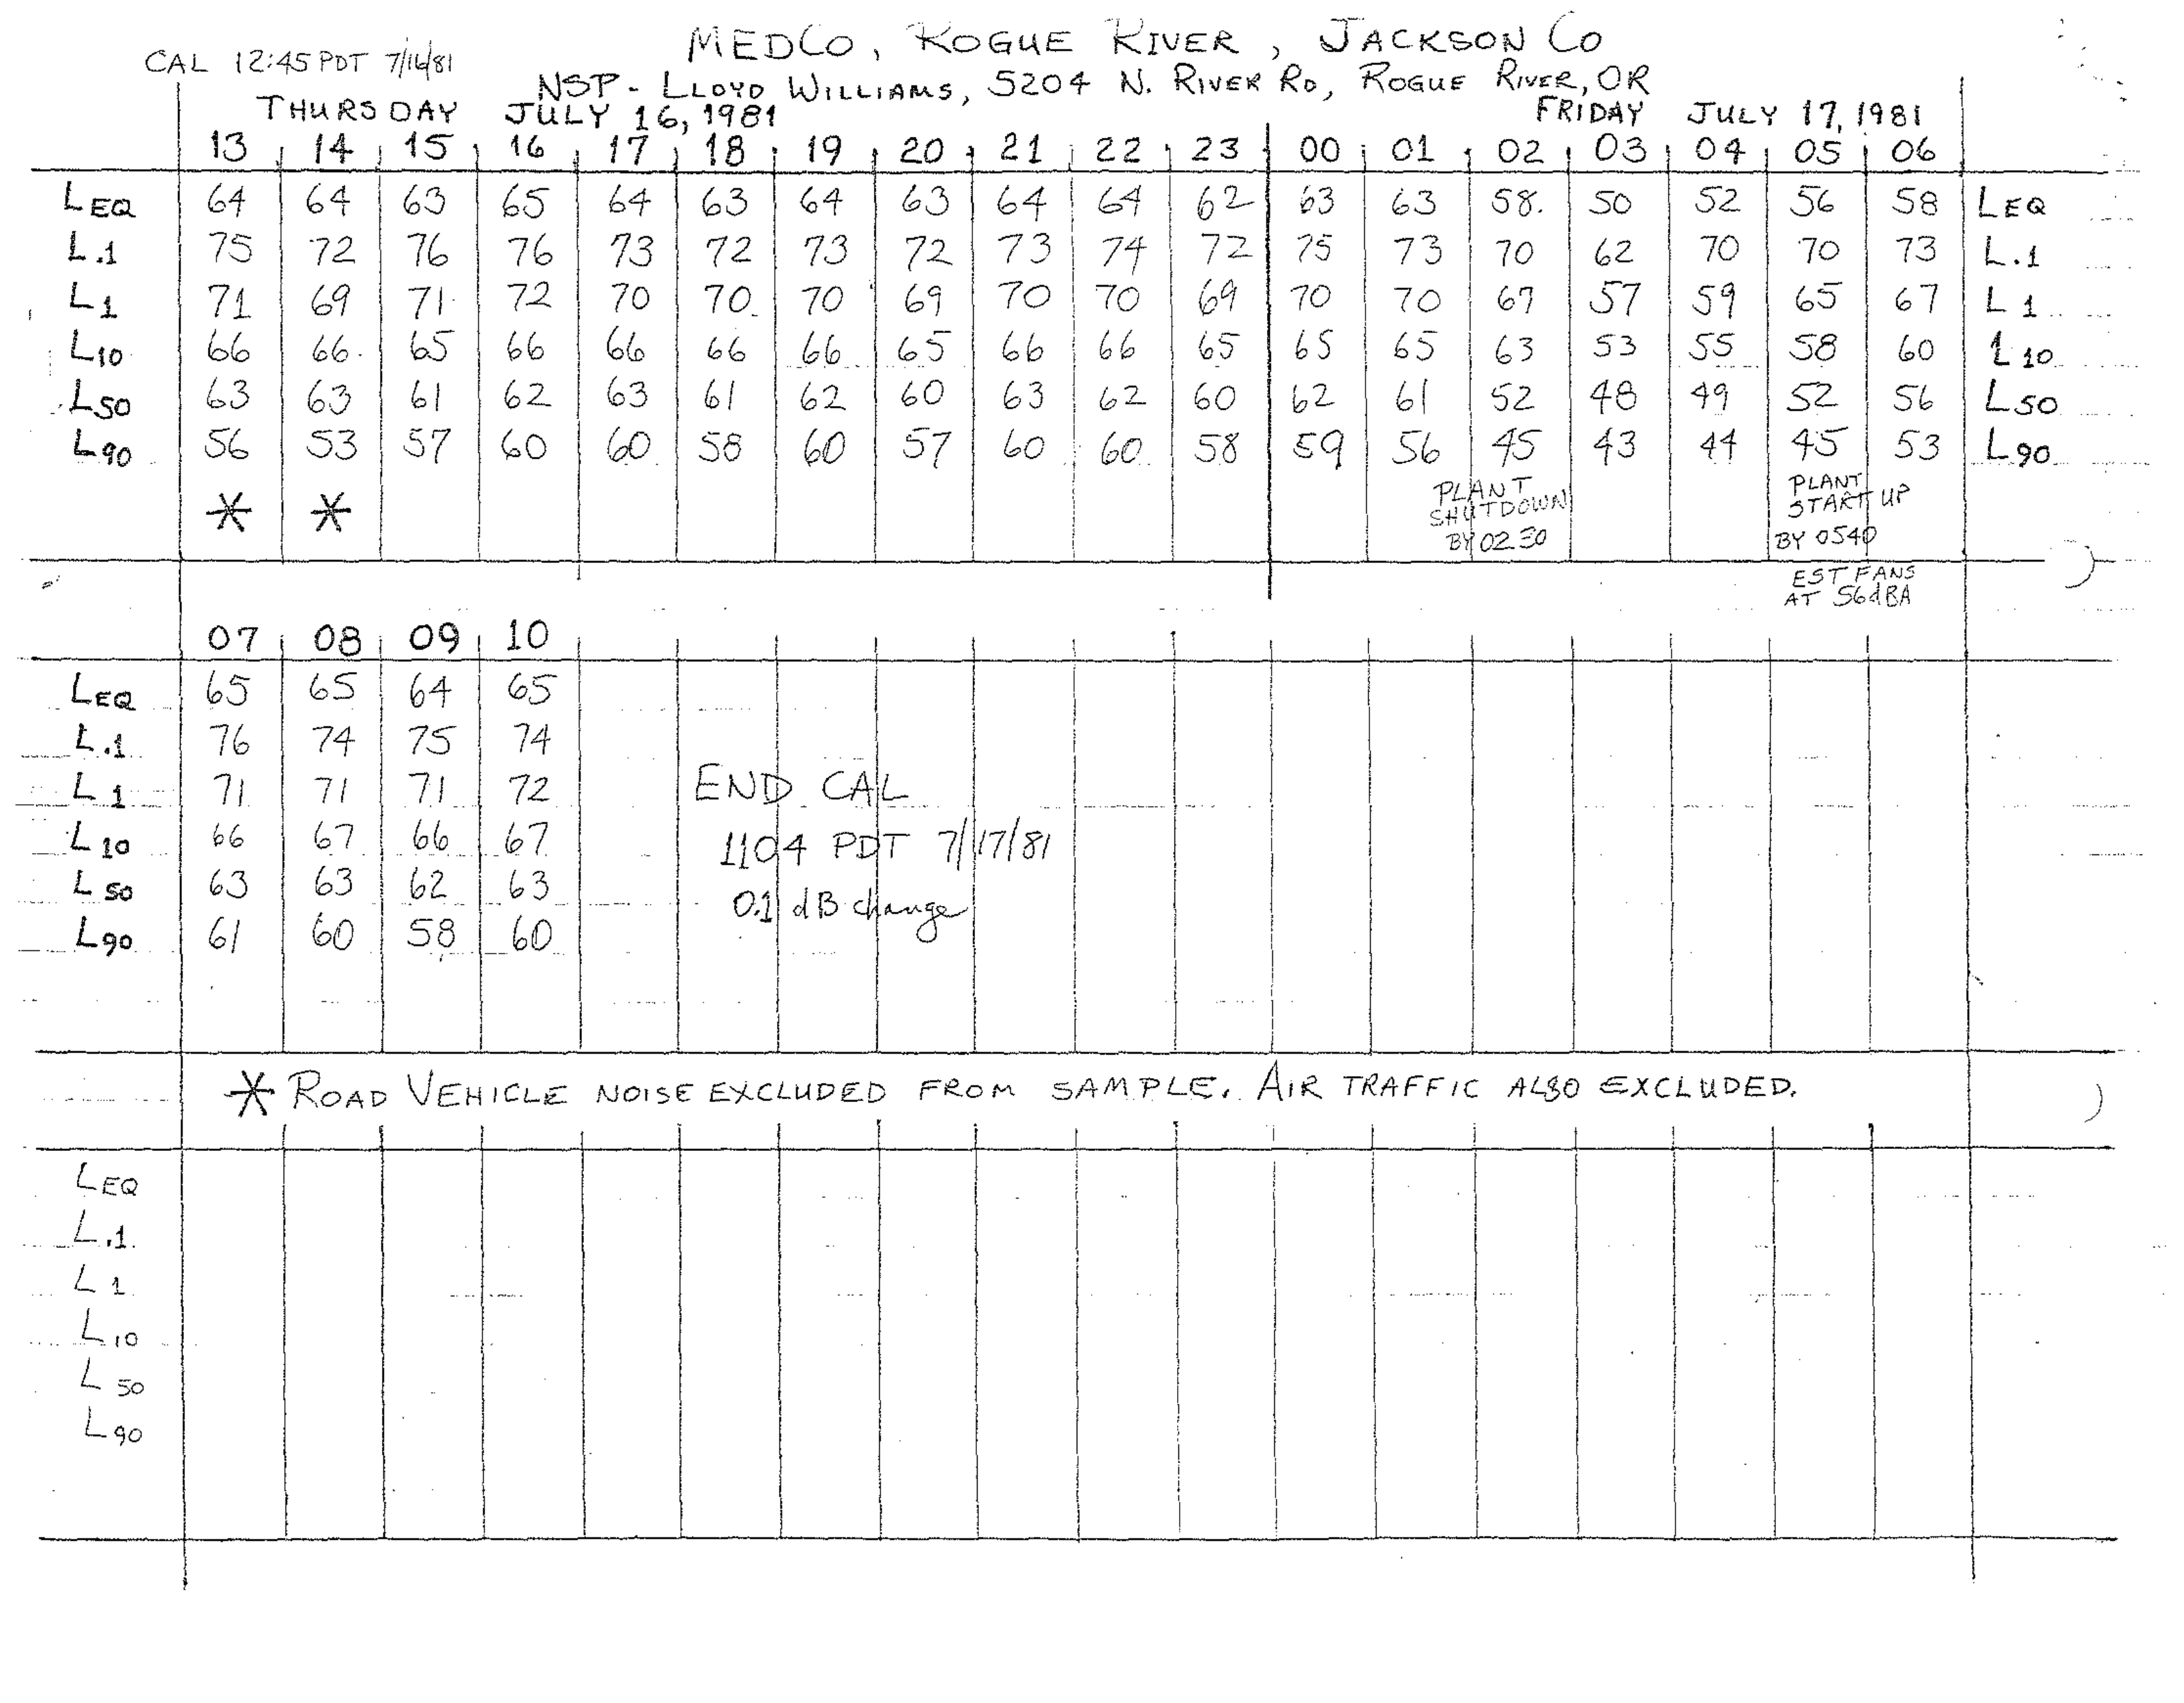 MEDCO, ROGUE RIVER, JACKSON CO
CAL 12:45 PDT 7/16/81
NSP - LLOYD WILLIAMS, 5204 N. RIVER RD, ROGUE RIVER, OR
THURSDAY JULY 16, 1981 FRIDAY JULY 17, 1981
13 14 15 16 17 18 19 20 21 22 23 00 01 02 03 04 05 06
LEQ 64 64 63 65 64 63 64 63 64 64 62 63 63 58. 50 52 56 58 LEQ
L.1 75 72 76 76 73 72 73 72 73 74 72 75 73 70 62 70 70 73 L.1
L1 71 69 71 72 70 70 70 69 70 70 69 70 70 67 57 59 65 67 L1
L10 66 66 65 66 66 66 66 65 66 66 65 65 65 63 53 55 58 60 L10
L50 63 63 61 62 63 61 62 60 63 62 60 62 61 52 48 49 52 56 L50
L90 56 53 57 60 60 58 60 57 60 60 58 59 56 45 43 44 45 53 L90
* *
PLANT SHUTDOWN BY 0230
PLANT START UP BY 0540
EST FANS AT 56dBA
07 08 09 10
LEQ 65 65 64 65
L.1 76 74 75 74
L1 71 71 71 72
L10 66 67 66 67
L50 63 63 62 63
L90 61 60 58 60
END CAL
1104 PDT 7/17/81
0.1 dB change
* ROAD VEHICLE NOISE EXCLUDED FROM SAMPLE. AIR TRAFFIC ALSO EXCLUDED.
LEQ
L.1
L1
L10
L50
L90